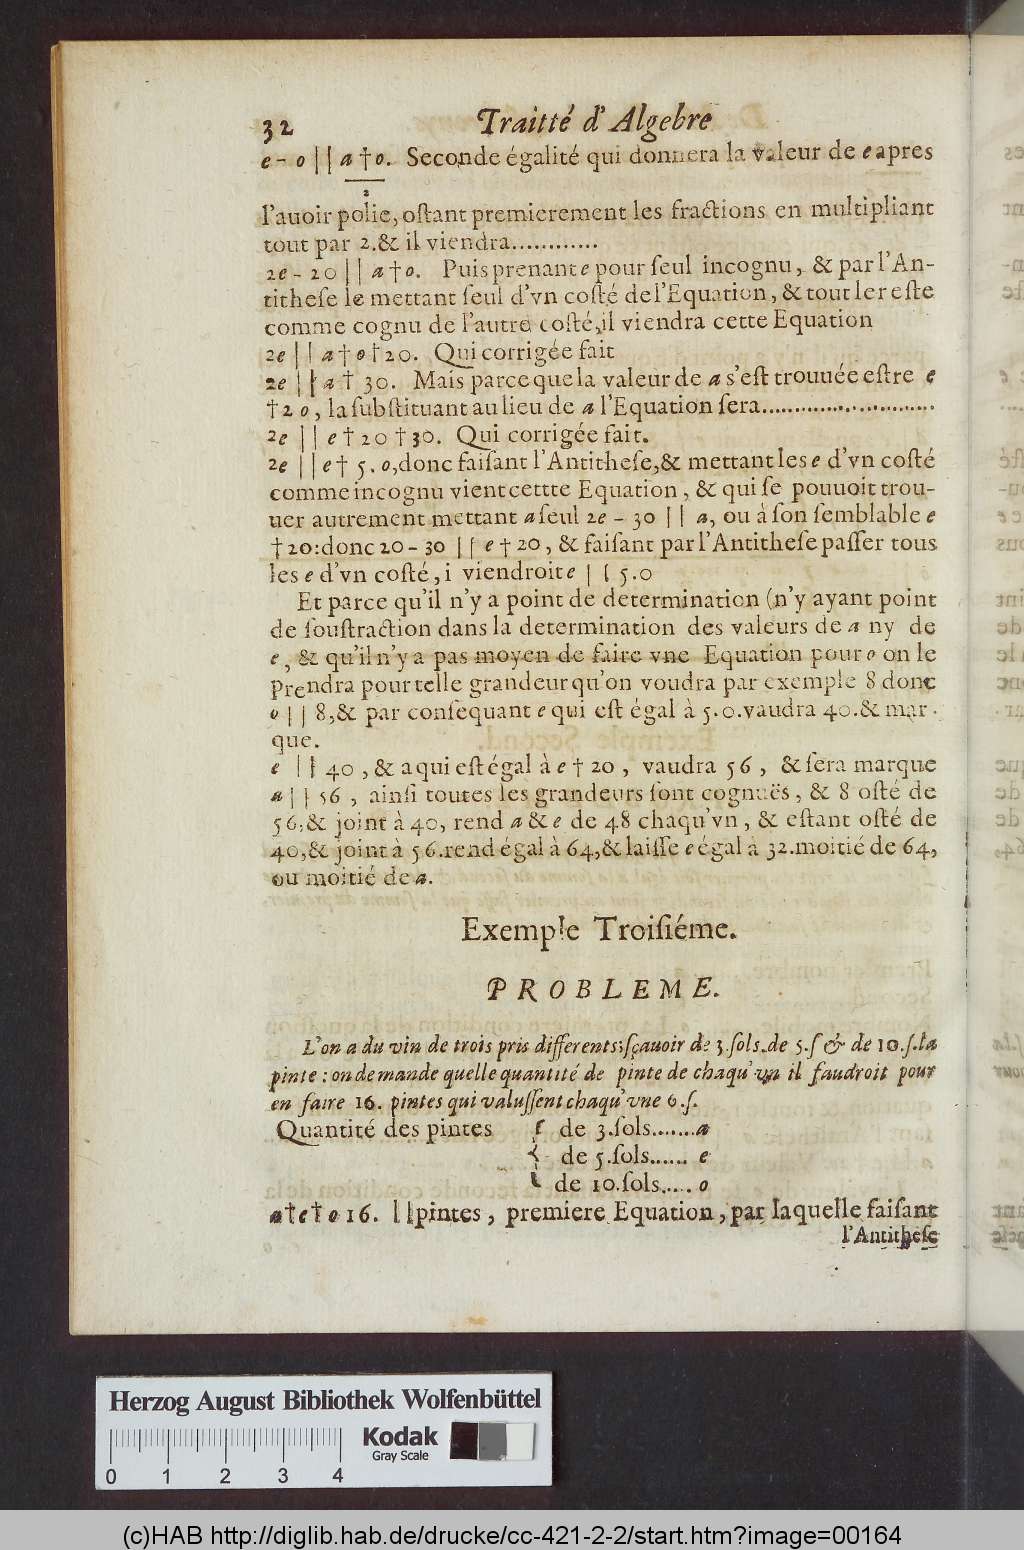 32 Traitté d'Algebre
e - o || a † o. Seconde égalité qui donnera la valeur de e apres
2
l'auoir polie, oſtant premierement les fractions en multipliant
tout par 2. & il viendra............
2e - 20 || a † o. Puis prenant e pour ſeul incognu, & par l'An-
titheſe le mettant ſeul d'vn coſté de l'Equation, & tout le reſte
comme cognu de l'autre coſté, il viendra cette Equation
2e || a † o † 20. Qui corrigée fait
2e || a † 30. Mais parce que la valeur de a s'eſt trouuée eſtre e
† 20, la ſubſtituant au lieu de a l'Equation ſera............................
2e || e † 20 † 30. Qui corrigée fait.
2e || e † 5.o, donc faiſant l'Antitheſe, & mettant les e d'vn coſté
comme incognu vient cettte Equation, & qui ſe pouuoit trou-
uer autrement mettant a ſeul 2e - 30 || a, ou à ſon ſemblable e
† 20: donc 20 - 30 || e † 20, & faiſant par l'Antitheſe paſſer tous
les e d'vn coſté, i viendroit e || 5.0
Et parce qu'il n'y a point de determination (n'y ayant point
de ſouſtraction dans la determination des valeurs de a ny de
e, & qu'il n'y a pas moyen de faire vne Equation pour o on le
prendra pour telle grandeur qu'on voudra par exemple 8 donc
o || 8, & par conſequant e qui eſt égal à 5.0. vaudra 40. & mar-
que.
e || 40, & a qui eſt égal à e † 20, vaudra 56, & ſera marque
a || 56, ainſi toutes les grandeurs ſont cognuës, & 8 oſté de
56, & joint à 40, rend a & e de 48 chaqu'vn, & eſtant oſté de
40, & joint à 56. rend égal à 64, & laiſſe e égal à 32. moitié de 64,
ou moitié de a.
Exemple Troiſiéme.
PROBLEME.
L'on a du vin de trois pris differents; ſçauoir de 3. ſols. de 5. ſ & de 10. ſ. la
pinte: on demande quelle quantité de pinte de chaqu'vn il faudroit pour
en faire 16. pintes qui valuſſent chaqu'vne 6. ſ.
Quantité des pintes { de 3. ſols.......a
de 5. ſols...... e
de 10. ſols..... o
a † e † o 16. || pintes, premiere Equation, par laquelle faiſant
l'Antitheſe
Herzog August Bibliothek Wolfenbüttel
Kodak
Gray Scale
0 1 2 3 4
(c)HAB http://diglib.hab.de/drucke/cc-421-2-2/start.htm?image=00164